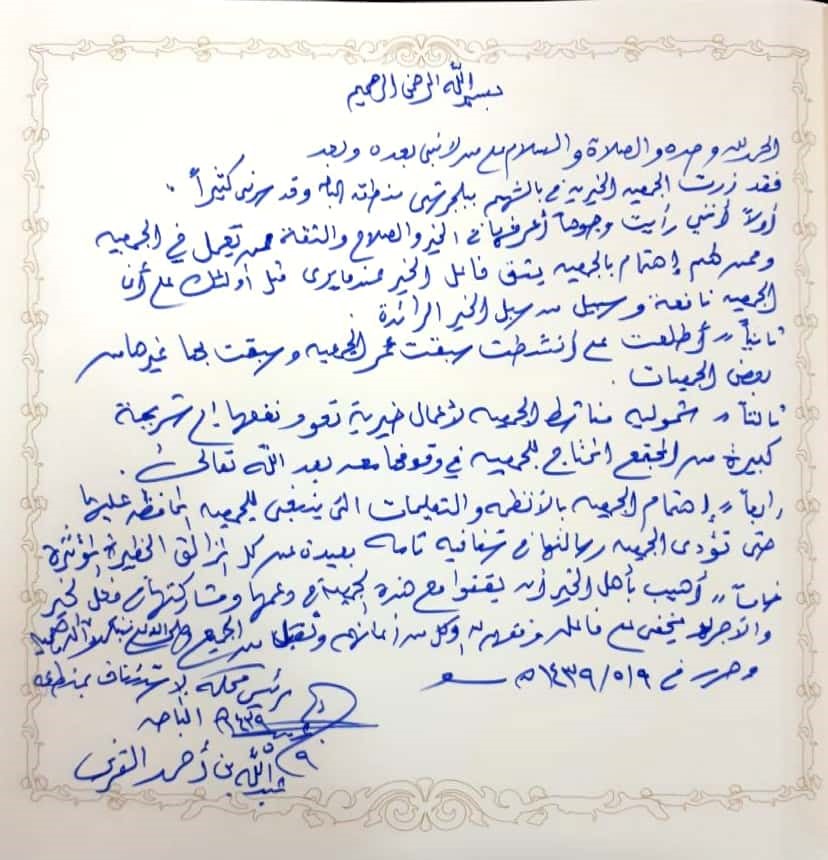 بسم الله الرحمن الرحيم
الحمد لله وحده والصلاة والسلام على من لا نبي بعده وبعد
فقد زرت الجمعية الخيرية في بالشهم ببلجرشي منطقة الباحة وقد سرني كثيراً
أولاً أنني رأيت وجوهاً أعرفها في الخير والصلاح والثقة ممن يعمل في الجمعية
وممن لهم إهتمام بالجمعيه يثق فاعل الخير عندما يرى مثل أولئك على أن
الجمعيه نافعة وسبيل من سبل الخير الرائدة
ثانياً،، أطلعت على أنشطت سبقت عمر الجمعيه وسبقت بها غيرها من
بعض الجمعيات .
ثالثاً،، شموليه مناشط الجمعيه لأعمال خيرية تعود نفعها إلى شريحة
كبيرة من المجتمع المحتاج للجمعيه في وقوفها معه بعد الله تعالى .
رابعاً،، إهتمام الجمعيه بالأنظمه والتعليمات التي ينبغي للجمعيه المحافظه عليها
حتى تؤدى الجمعيه رسالتها في شفافيه تامه بعيدة عن كل المزالق الخطيرة المؤثرة
خامساً،، أهيب بأهل الخير أن يقفوا مع هذه الجمعية في دعمها ومشاركتها في فعل الخير
والأجر يخفى على فاعله وكل من أعانهم وتقبل من الجميع
وحرر في ١٤٣٩/٥/٩هـ
رئيس محكمة الاستئناف بمنطقة
الباحه
١٤٣٩
عبدالله بن أحمد القرني